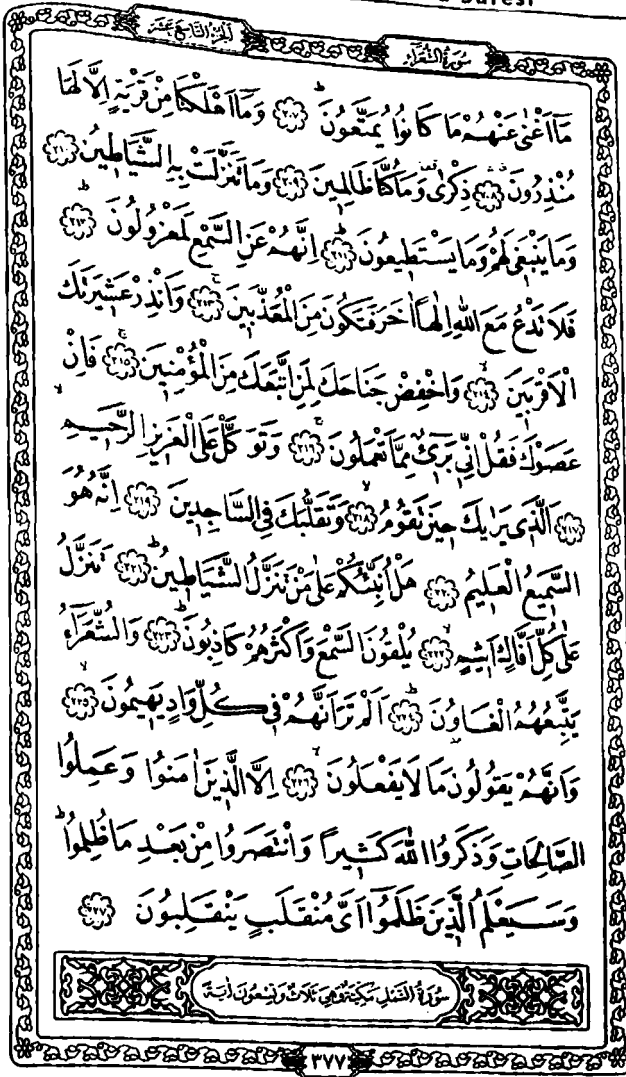 Suresi
سُورَةُ الشُّعَرَاءِ
اَلْجُزْءُ التَّاسِعَ عَشَرَ
مَٓا اَغْنٰى عَنْهُمْ مَا كَانُوا يُمَتَّعُونَۜ ﴿٢٠٧﴾ وَمَٓا اَهْلَكْنَا مِنْ قَرْيَةٍ اِلَّا لَهَا
مُنْذِرُونَۗ ﴿٢٠٨﴾ ذِكْرٰى۠ وَمَا كُنَّا ظَالِم۪ينَ ﴿٢٠٩﴾ وَمَا تَنَزَّلَتْ بِهِ الشَّيَاط۪ينُ ﴿٢١٠﴾
وَمَا يَنْبَغ۪ي لَهُمْ وَمَا يَسْتَط۪يعُونَۜ ﴿٢١١﴾ اِنَّهُمْ عَنِ السَّمْعِ لَمَعْزُولُونَۜ ﴿٢١٢﴾
فَلَا تَدْعُ مَعَ اللّٰهِ اِلٰهًا اٰخَرَ فَتَكُونَ مِنَ الْمُعَذَّب۪ينَۚ ﴿٢١٣﴾ وَاَنْذِرْ عَش۪يرَتَكَ
الْاَقْرَب۪ينَۙ ﴿٢١٤﴾ وَاخْفِضْ جَنَاحَكَ لِمَنِ اتَّبَعَكَ مِنَ الْمُؤْمِن۪ينَۚ ﴿٢١٥﴾ فَاِنْ
عَصَوْكَ فَقُلْ اِنّ۪ي بَر۪ٓيءٌ مِمَّا تَعْمَلُونَۚ ﴿٢١٦﴾ وَتَوَكَّلْ عَلَى الْعَز۪يزِ الرَّح۪يمِۙ
﴿٢١٧﴾ اَلَّذ۪ي يَرٰيكَ ح۪ينَ تَقُومُۙ ﴿٢١٨﴾ وَتَقَلُّبَكَ فِي السَّاجِد۪ينَ ﴿٢١٩﴾ اِنَّهُ هُوَ
السَّم۪يعُ الْعَل۪يمُ ﴿٢٢٠﴾ هَلْ اُنَبِّئُكُمْ عَلٰى مَنْ تَنَزَّلُ الشَّيَاط۪ينُۜ ﴿٢٢١﴾ تَنَزَّلُ
عَلٰى كُلِّ اَفَّاكٍ اَث۪يمٍۙ ﴿٢٢٢﴾ يُلْقُونَ السَّمْعَ وَاَكْثَرُهُمْ كَاذِبُونَۜ ﴿٢٢٣﴾ وَالشُّعَرَٓاءُ
يَتَّبِعُهُمُ الْغَاوُ۫نَۜ ﴿٢٢٤﴾ اَلَمْ تَرَ اَنَّهُمْ ف۪ي كُلِّ وَادٍ يَه۪يمُونَۙ ﴿٢٢٥﴾
وَاَنَّهُمْ يَقُولُونَ مَا لَا يَفْعَلُونَۙ ﴿٢٢٦﴾ اِلَّا الَّذ۪ينَ اٰمَنُوا وَعَمِلُوا
الصَّالِحَاتِ وَذَكَرُوا اللّٰهَ كَث۪يرًا وَانْتَصَرُوا مِنْ بَعْدِ مَا ظُلِمُواۜ
وَسَيَعْلَمُ الَّذ۪ينَ ظَلَمُٓوا اَيَّ مُنْقَلَبٍ يَنْقَلِبُونَ ﴿٢٢٧﴾
سُورَةُ النَّمْلِ مَكِّيَّةٌ وَهِيَ ثَلَاثٌ وَتِسْعُونَ اٰيَةً
٣٧٧